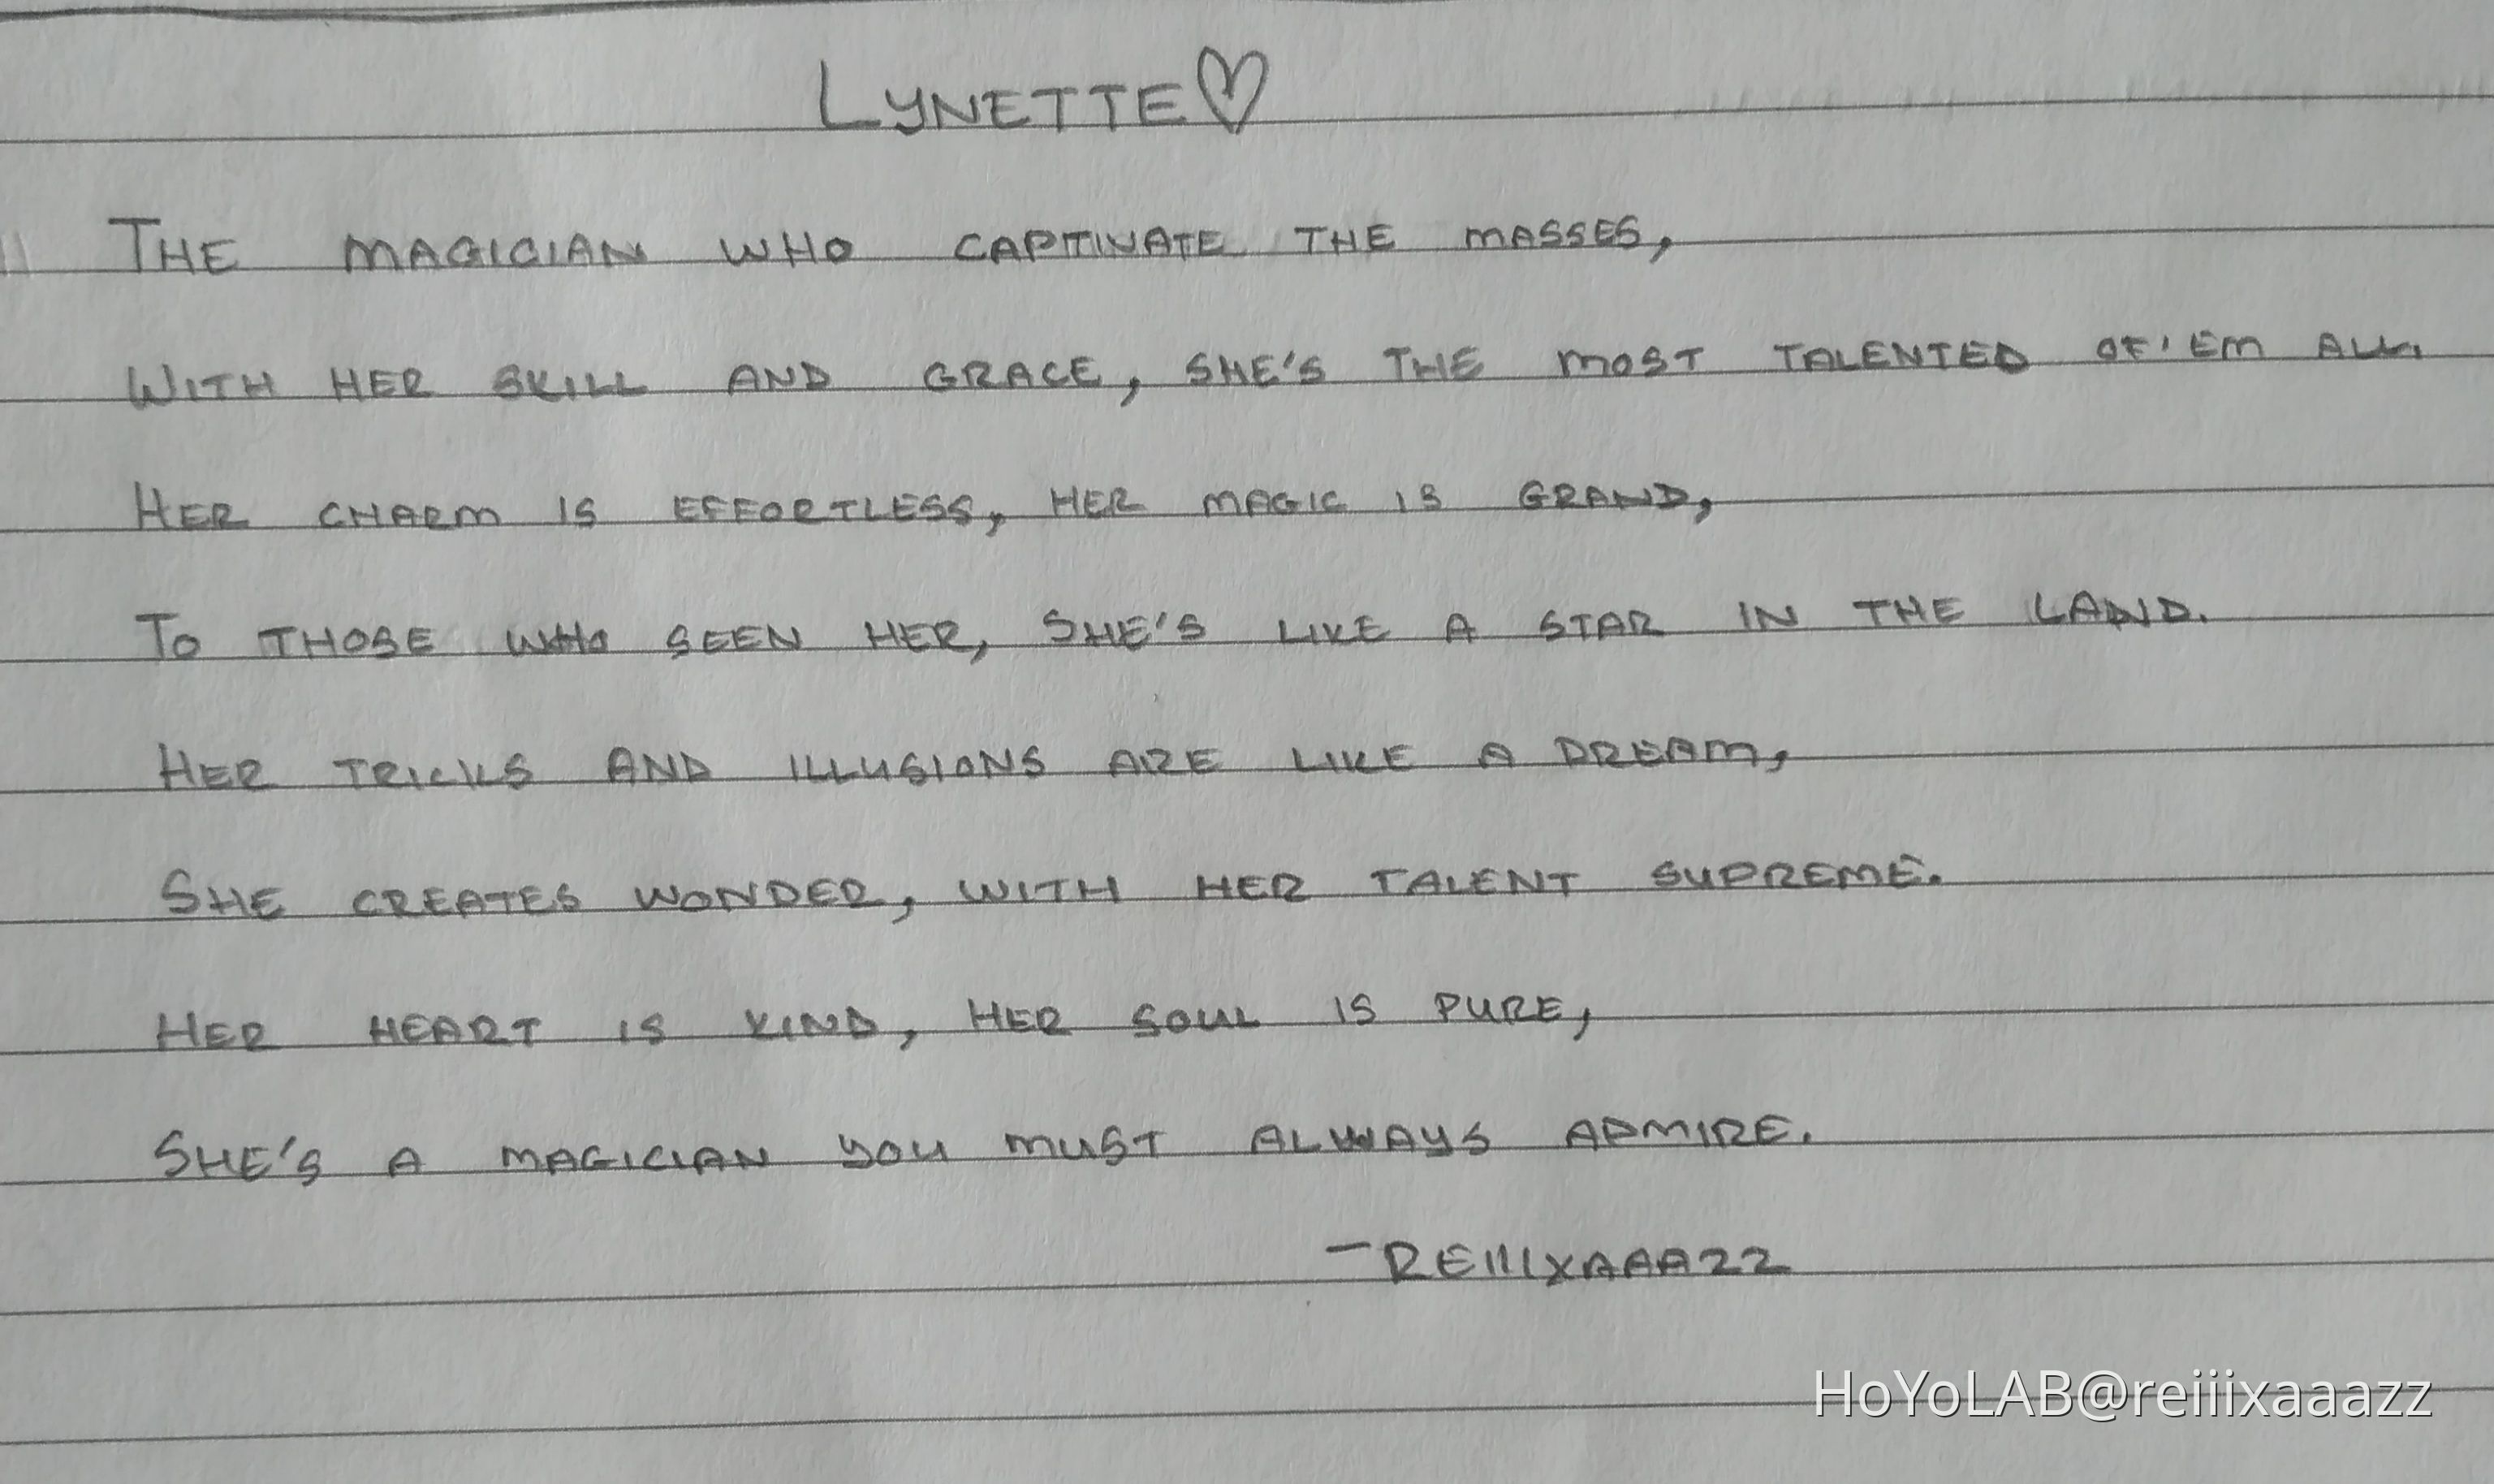 LYNETTE♡
THE MAGICIAN WHO CAPTIVATE THE MASSES,
WITH HER SKILL AND GRACE, SHE'S THE MOST TALENTED OF 'EM ALL.
HER CHARM IS EFFORTLESS, HER MAGIC IS GRAND,
TO THOSE WHO SEEN HER, SHE'S LIKE A STAR IN THE LAND.
HER TRICKS AND ILLUSIONS ARE LIKE A DREAM,
SHE CREATES WONDER, WITH HER TALENT SUPREME.
HER HEART IS KIND, HER SOUL IS PURE,
SHE'S A MAGICIAN YOU MUST ALWAYS ADMIRE.
-REIIIXAAAZZ
HoYoLAB@reiiixaaazz